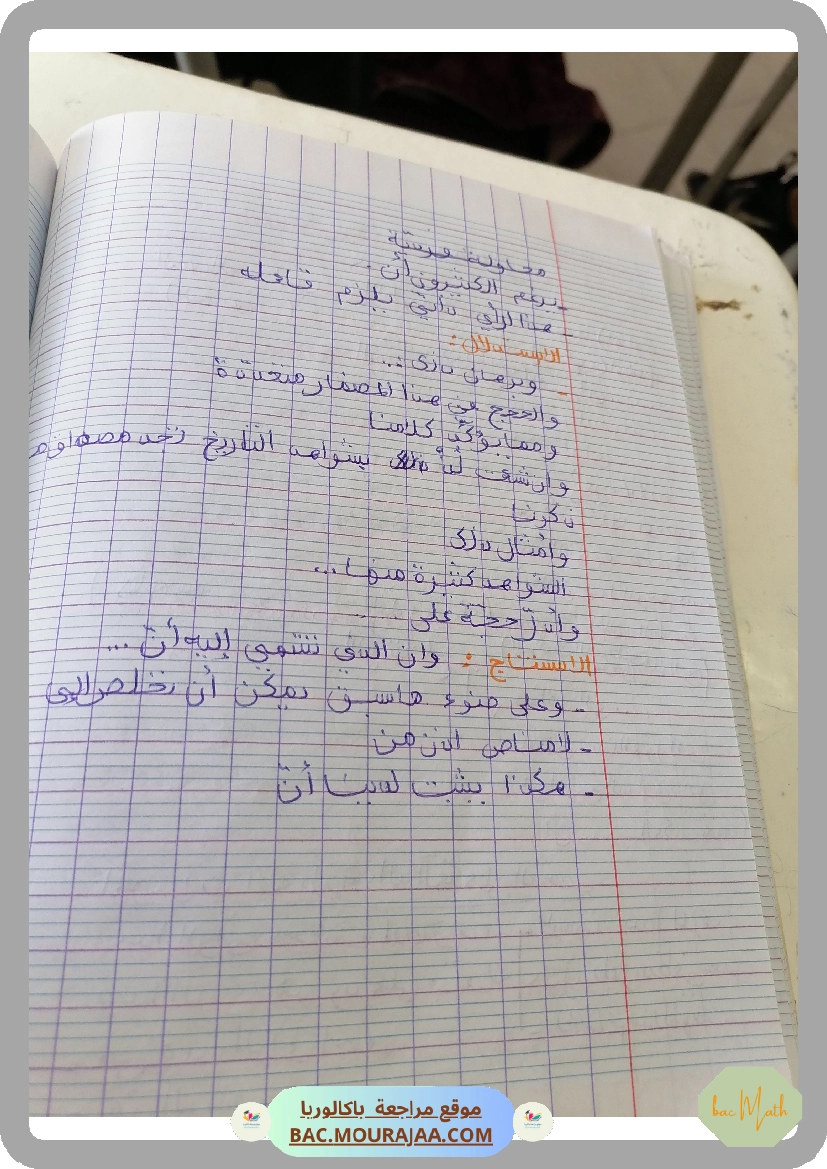 محاولة
- يزعم الكثيرون أن
- هذا الرأي يلزم قائله
الاستدلال:
- وبرهان ذلك ...
والحجج في هذا المضمار متعددة
ومما يؤكد كلامنا
بشواهد التاريخ نجد
ذكرنا
وأمثال ذلك
الشواهد كثيرة منها ...
وأدل حجة على ...
الاستنتاج : وان الذي ننتهي إليه أن ...
- وعلى ضوء ما سبق يمكن أن نخلص إلى
- لامناص اذن من
- هكذا يثبت لدينا أن
موقع مراجعة باكالوريا
BAC.MOURAJAA.COM
bac Math